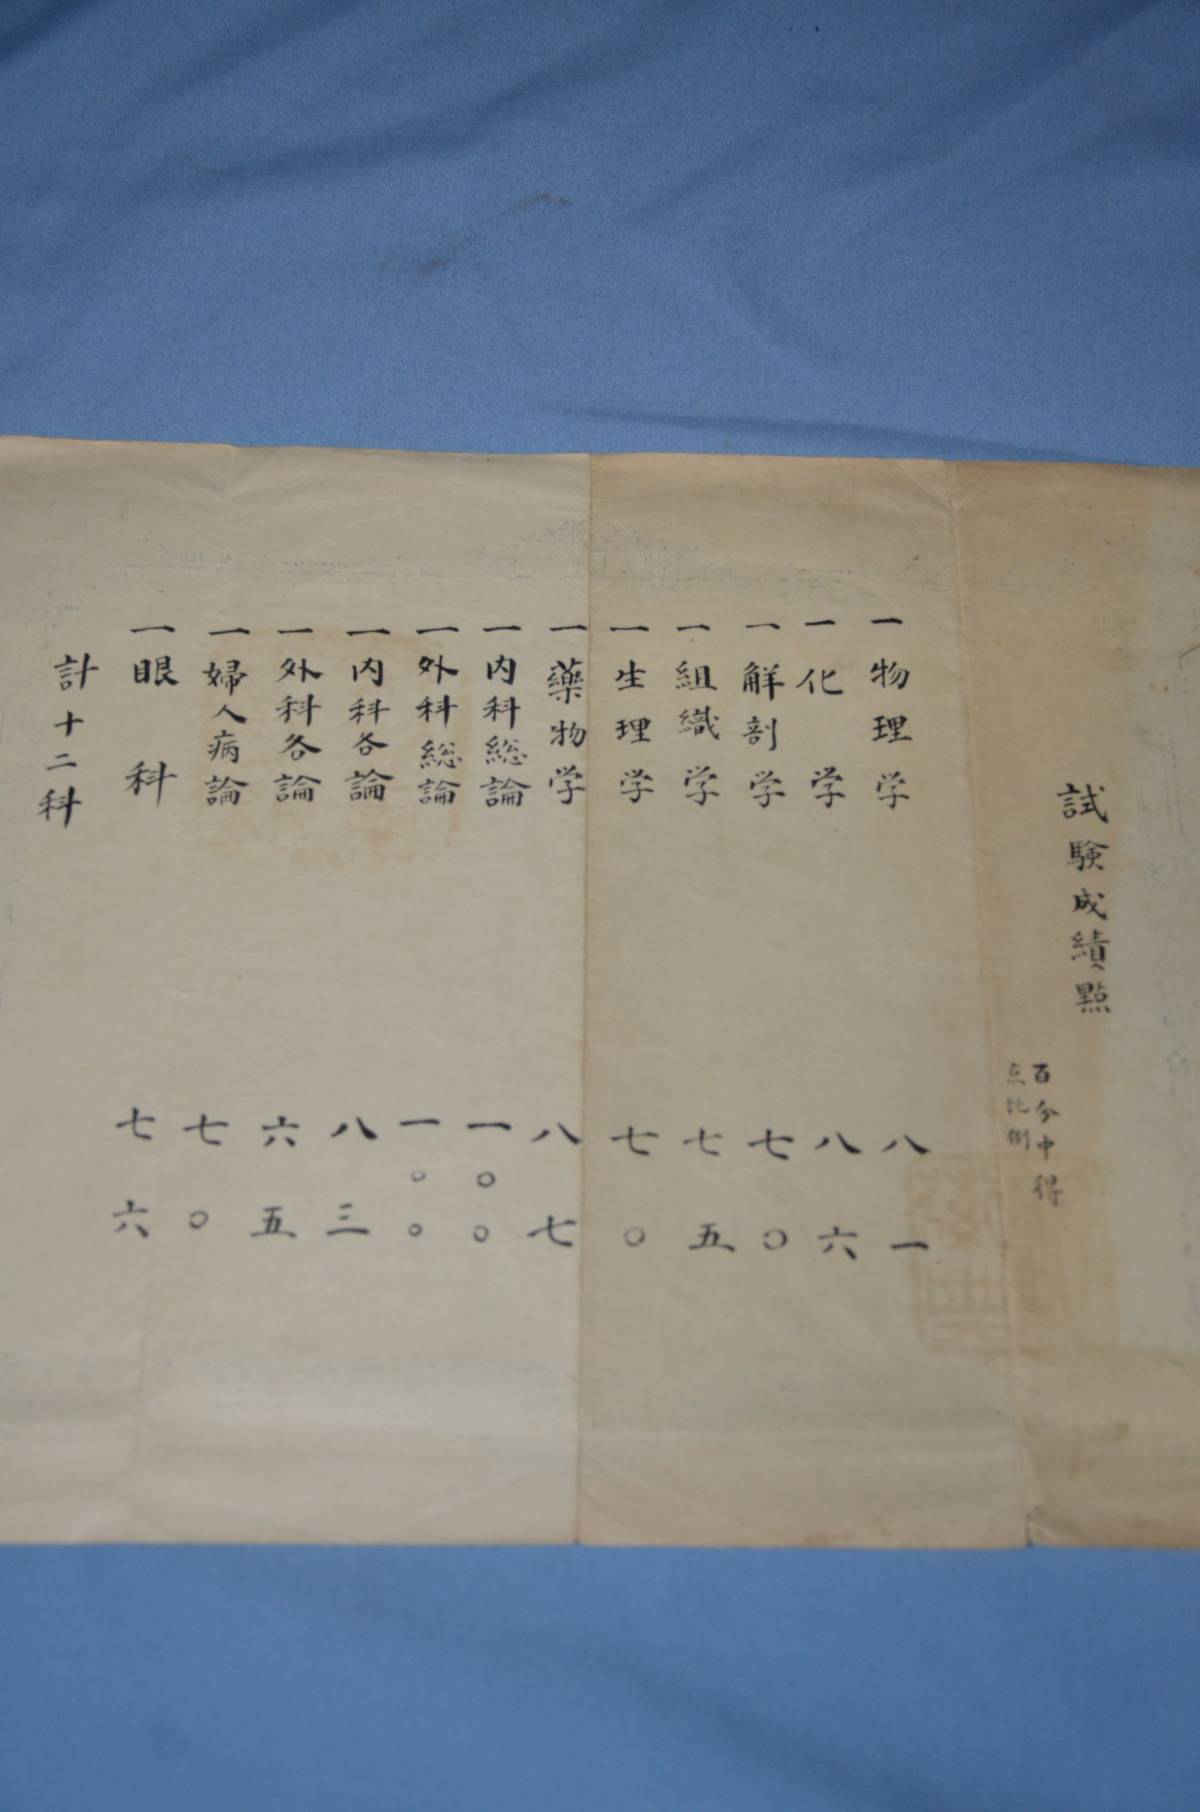 試験成績點
百分中得
点比例
一物理学 八一
一化学 八六
一解剖学 七〇
一組織学 七五
一生理学 七〇
一藥物学 八七
一内科総論 一〇〇
一外科総論 一〇〇
一内科各論 八三
一外科各論 六五
一婦人病論 七〇
一眼科 七六
計十二科